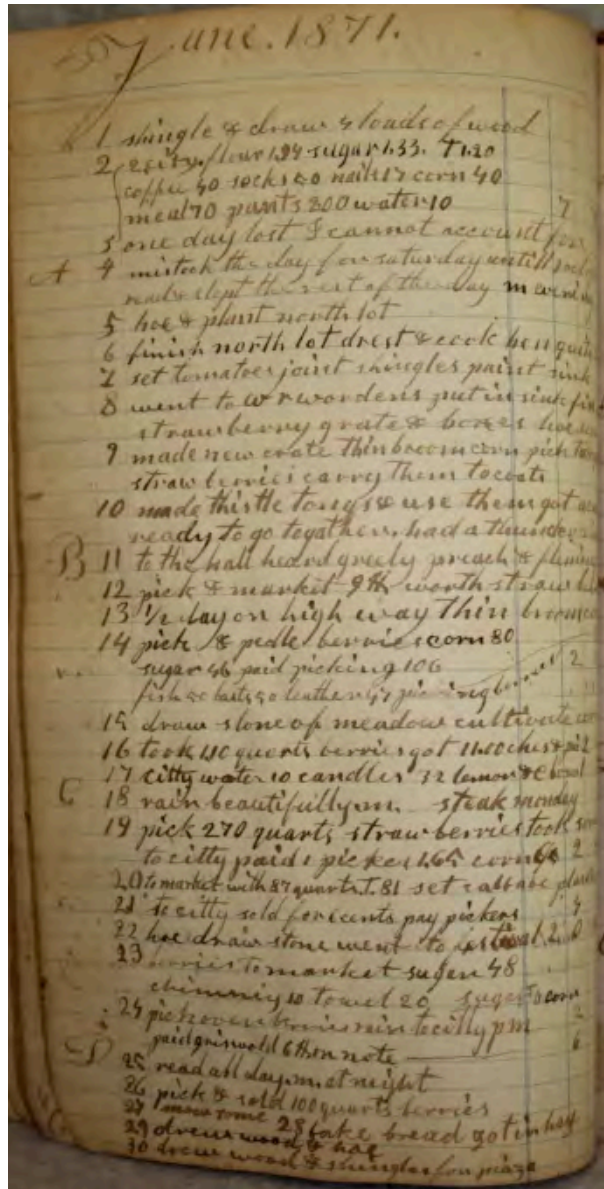 June. 1871.
1 shingle & draw 4 loads of wood
2 citty. flour 1.94 sugar 1.33. T 1.20
coffee 40 socks 50 nails 17 corn 40
meal 70 pants 200 water 10 7
3 one day lost I cannot account for
A 4 mistook the day for saturday untill
read & slept the rest of the day m
5 hoe & plant north lot
6 finish north lot drest & cook hen
7 set tomatoes joint shingles paint sink
8 went to w r wordens put in sink
strawberry grate & boxes hoe
9 made new crate thin broom corn pick
straw berries carry them to
10 made thistle tongs & use them got
ready to go together. had a thunder
B 11 to the hall heard greely preach &
12 pick & market 9 worth straw
13 1/2 day on high way thin
14 pick & pedle berries corn 80
sugar 46 paid picking 106 2
fish
15 draw stone of meadow cultivate
16 took 110 quarts berries got 11.00
17 citty water 10 candles 32 lemon &
C 18 rain beautifully m. steak monday
19 pick 270 quarts straw berries took
to citty paid 1 picker 1.65 corn 2
20 to market with 87 quarts. T. 81 set
21 to citty sold for cents pay pickers 4
22 hoe draw stone went to
23 berries to market sugen 48
chimniy 10 towel 20 suger corn
24 pick over rain to citty pm 2
paid griswold 6 th on note 6
D 25 read all day. m. at night
26 pick & sold 100 quarts berries
27 mow some 28 bake bread got in hay
29 drew wood & hoe
30 drew wood & shingles for piaza